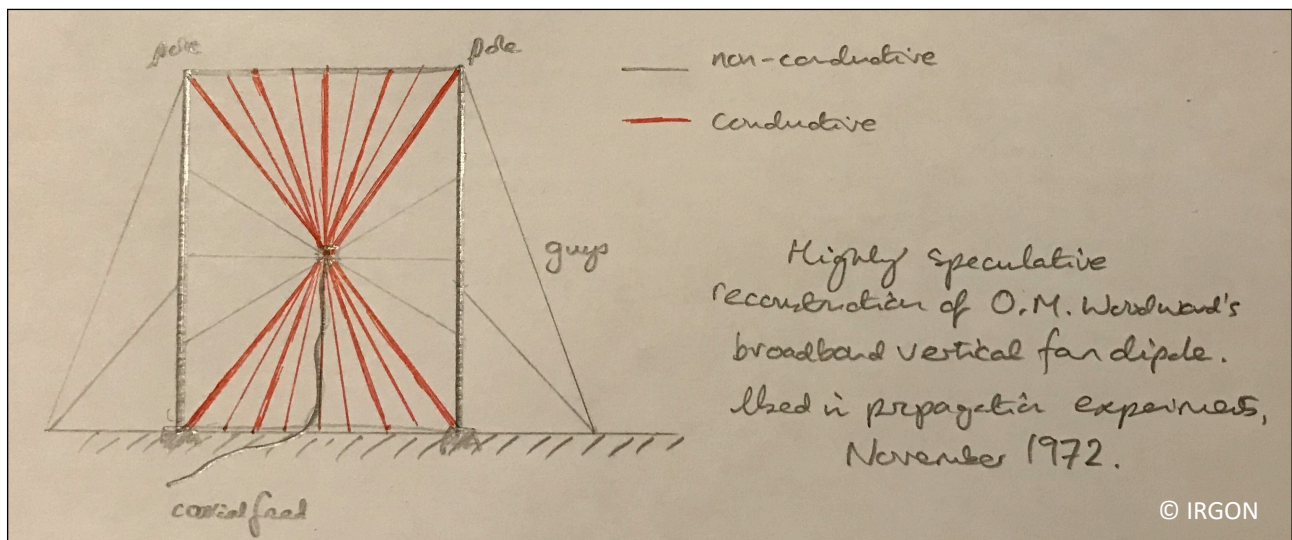 pole
pole
non-conductive
conductive
guys
Highly speculative
reconstruction of O.M. Woodward's
broadband vertical fan dipole.
Used in propagation experiments,
November 1972.
coaxial feed
© IRGON